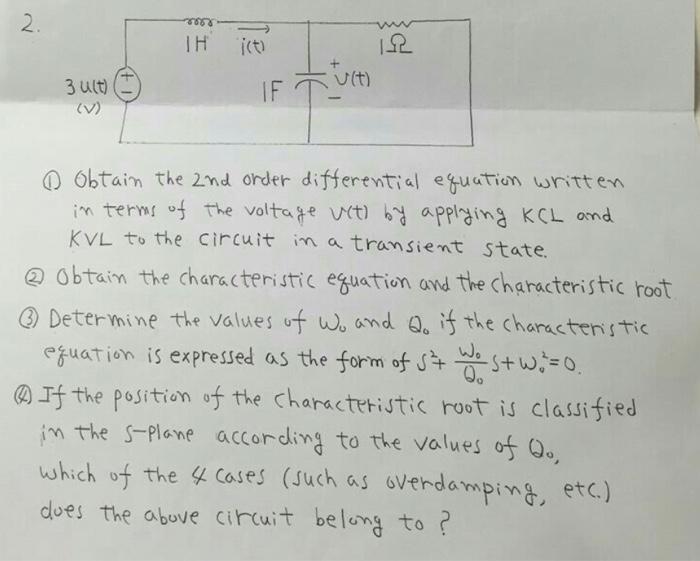 2.
1H i(t) 1Ω
3u(t) + − 1F + v(t) −
(V)
① Obtain the 2nd order differential equation written
in terms of the voltage v(t) by applying KCL and
KVL to the circuit in a transient state.
② Obtain the characteristic equation and the characteristic root
③ Determine the values of ω₀ and Q₀ if the characteristic
equation is expressed as the form of s² + ω₀/Q₀ s + ω₀² = 0.
④ If the position of the characteristic root is classified
in the s-plane according to the values of Q₀,
which of the 4 cases (such as overdamping, etc.)
does the above circuit belong to ?